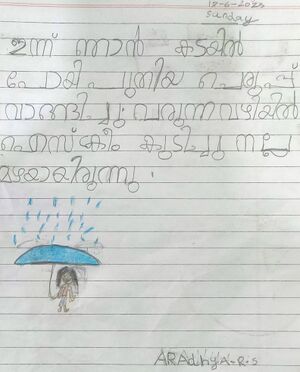 18-6-2023
Sunday
ഇന്ന് ഞാൻ കടയിൽ
പോയി പുതിയ ചെരുപ്പ്
വാങ്ങി ച്ചു. വരുന്ന വഴിയിൽ
ഐസ്ക്രീം കുടിച്ചു നല്ല
മഴയായിരുന്നു.
ARAdhyA-R-S